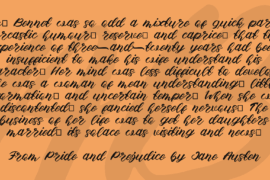 r▯ Bennet was so odd a mixture of quick par
rcastic humour▯ reserve▯ and caprice▯ that th
xperience of three—and—twenty years had bee
insufficient to make his wife understand his
aracter▯ Her mind was less difficult to develo
he was a woman of mean understanding▯ littl
formation▯ and uncertain temper▯ When she wa
discontented▯ she fancied herself nervous▯ The
business of her life was to get her daughters
married▯ its solace was visiting and news▯
From Pride and Prejudice by Jane Austen